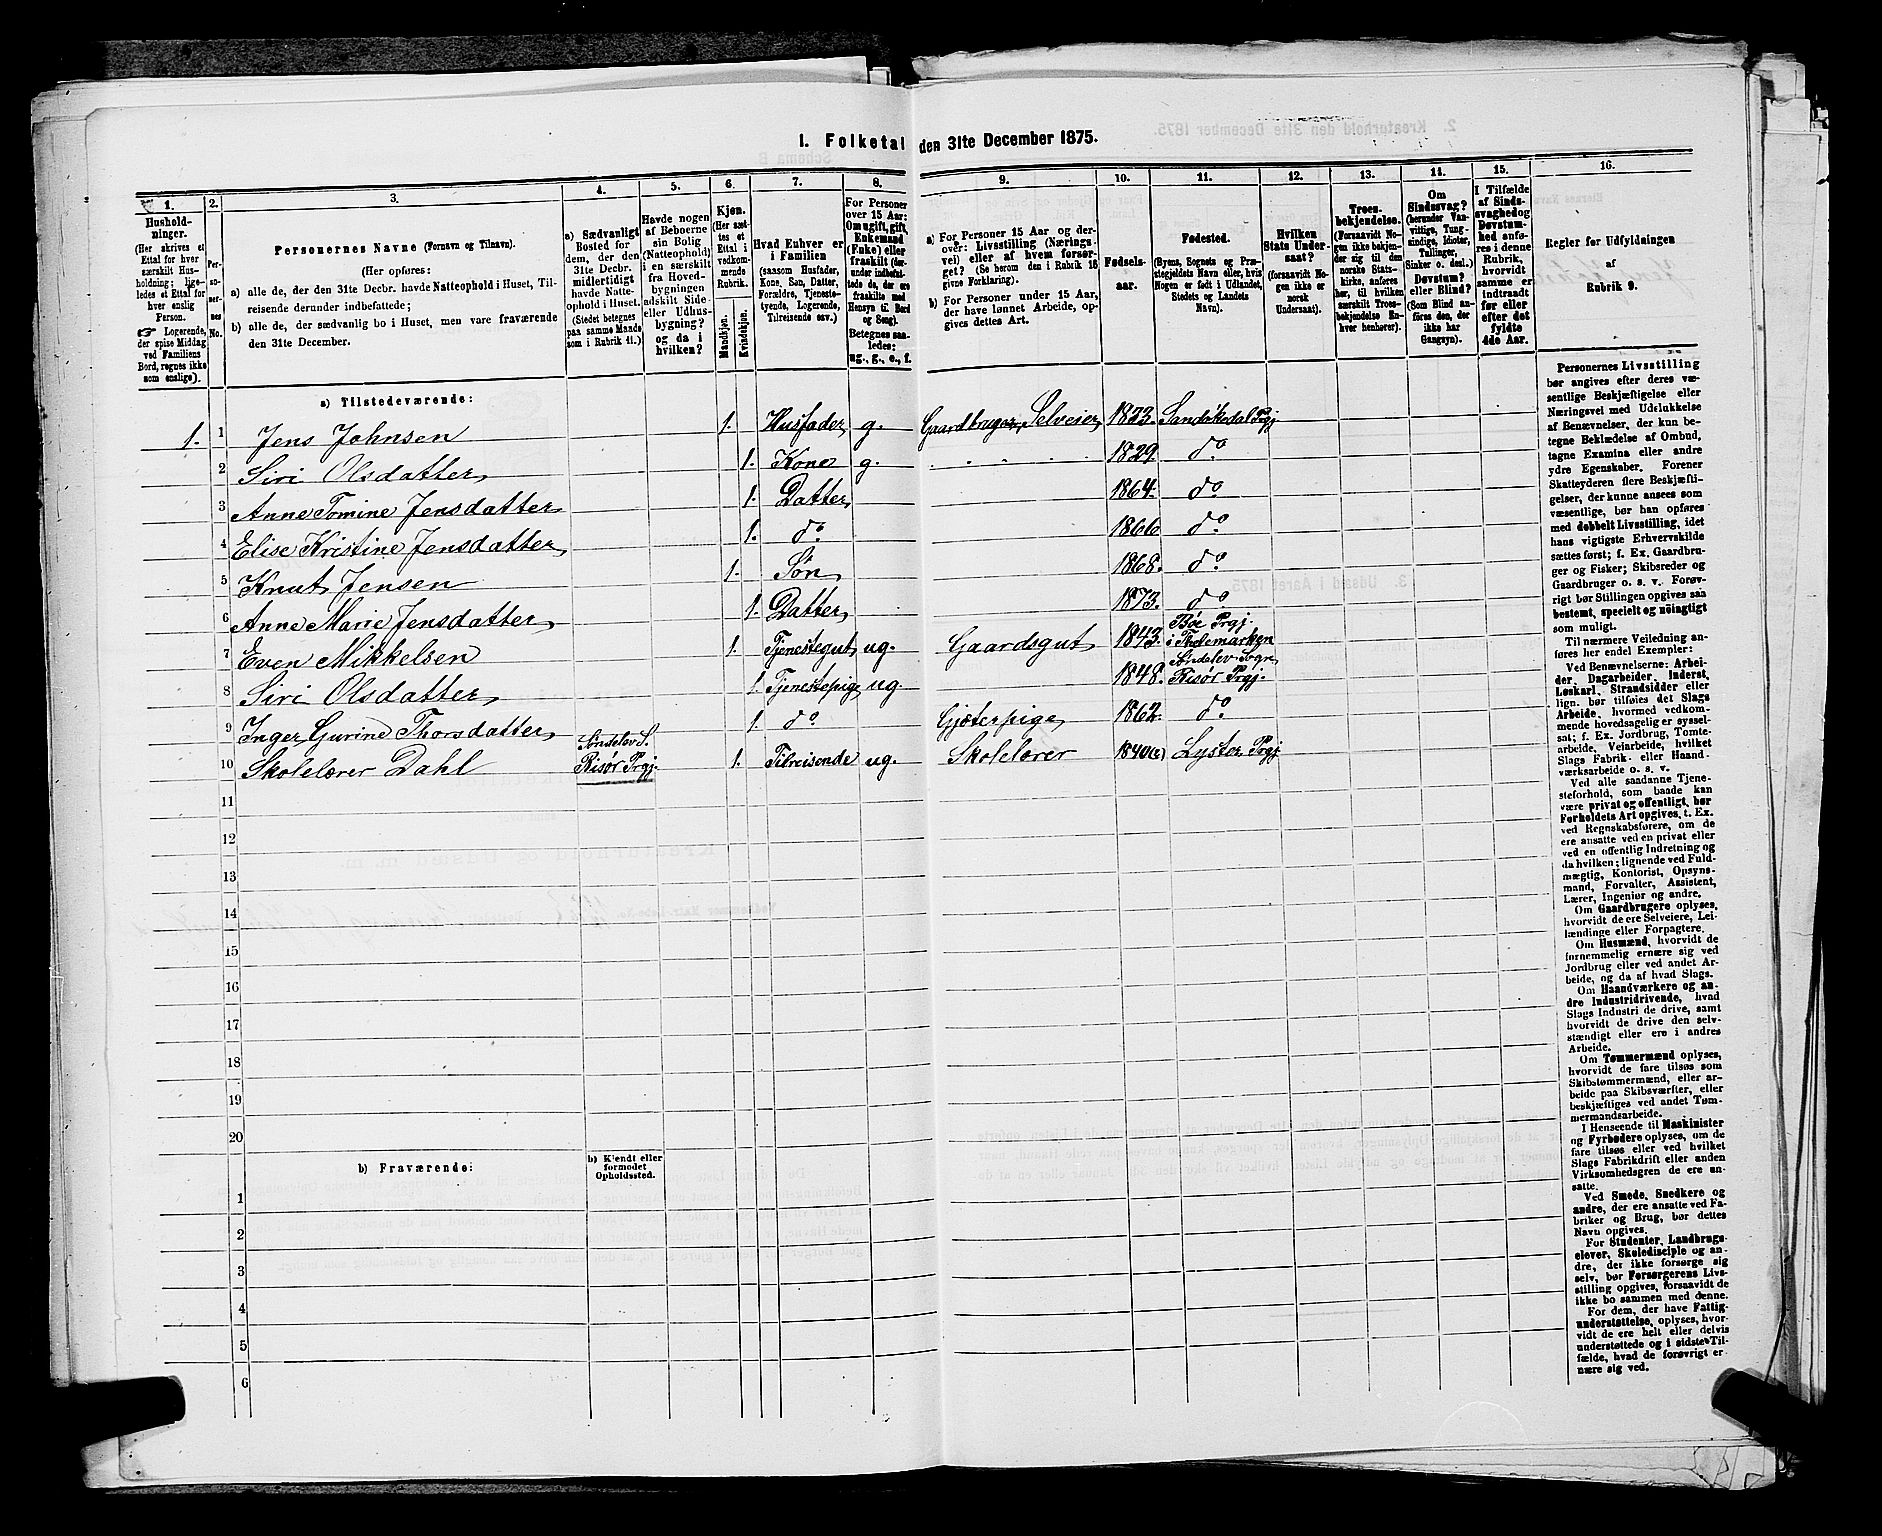 I. Folketal den 31te December 1875.
1.
Husholdninger.
(Her skrives et Ettal for hver særskilt Husholdning; ligeledes et Ettal for hver enslig Person.
☞ Logerende, der spise Middag ved Familiens Bord, regnes ikke som enslige).
2.
Personernes No.
3.
Personernes Navne (Fornavn og Tilnavn).
(Her opføres:
a) alle de, der den 31te Decbr. havde Natteophold i Huset, Tilreisende derunder indbefattede;
b) alle de, der sædvanlig bo i Huset, men vare fraværende den 31te December.
4.
a) Sædvanligt Bosted for dem, der den 31te Decbr. midlertidigt havde Natteophold i Huset.
(Stedet betegnes paa samme Maade som i Rubrik 11.)
5.
Havde nogen af Beboerne sin Bolig (Natteophold) i en særskilt fra Hovedbygningen adskilt Side- eller Udhusbygning? og da i hvilken?
6.
Kjøn.
(Her sættes et Ettal i vedkommende Rubrik.
Mandkjøn.
Kvindekjøn.
7.
Hvad Enhver er i Familien
(saasom Husfader, Kone, Søn, Datter, Forældre, Tjenestetyende, Logerende, Tilreisende osv.)
8.
For Personer over 15 Aar: Om ugift, gift, Enkemand (Enke) eller fraskilt (derunder indbefattede de, der ere fraskilte med Hensyn til Bord og Seng).
Betegnes saaledes:
ug., g., e., f.
9.
a) For Personer 15 Aar og derover: Livsstilling (Næringsvei) eller af hvem forsørget? (Se herom den i Rubrik 16 givne Forklaring).
b) For Personer under 15 Aar, der have lønnet Arbeide, opgives dettes Art.
10.
Fødselsaar.
11.
Fødested.
(Byens, Sognets og Præstegjeldets Navn eller, hvis Nogen er født i Udlandet, Stedets og Landets Navn).
12.
Hvilken Stats Undersaat?
(forsaavidt Nogen ikke er norsk Undersaat).
13.
Troesbekjendelse.
(Forsaavidt Nogen ikke bekjender sig til den norske Statskirke, anføres her, til hvilken særskilt Troesbekjendelse Enhver henhører).
14.
Om Sindssvag? (herunder Vanvittige, Tungsindige, Idioter, Tullinger, Sinker o. desl.) Døvstum? eller Blind? (Som Blind anføres den, der ikke har Gangsyn).
15.
I Tilfælde af Sindssvaghed og Døvstumhed anføres i denne Rubrik, hvorvidt samme er indtraadt før eller efter det fyldte 4de Aar.
16.
Regler for Udfyldningen
af
Rubrik 9.
a) Tilstedeværende:
1. 1 Jens Johnsen 1. Husfader g. Gaardbruger, Selveier 1823. Sandøkedal Prgj
2 Siri Olsdatter 1. Kone g. 1829. do
3 Anne Tomine Jensdatter 1. Datter 1864. do
4 Elise Kristine Jensdatter 1. do 1866 do
5 Knut Jensen 1. Søn 1868. do
6 Anne Marie Jensdatter 1. Datter 1873. do
7 Even Mikkelsen 1. Tjenestegut ug. Gaardsgut 1843. Bøe Prgj. i Thelemarken
8 Siri Olsdatter 1. Tjenestepige ug. 1848. Søndelev Sogn Risør Prgj.
9 Inger Gurine Thorsdatter 1. do Gjæterpige 1862. do
10 Skolelærer Dahl Søndelev S. Risør Prgj. 1. Tilreisende ug. Skolelærer 1840(c) Lyster Prgj
11
12
13
14
15
16
17
18
19
20
b) Fraværende:
b) Kjendt eller formodet Opholdssted.
1
2
3
4
5
6
Personernes Livsstilling
bør angives efter deres væ-
sentlige Beskjæftigelse eller
Næringsvei med Udelukkelse
af Benævnelser, der kun be-
tegne Beklædelse af Ombud,
tagne Examina eller andre
ydre Egenskaber. Forener
Skatteyderen flere Beskjæfti-
gelser, der kunne ansees som
væsentlige, bør han opføres
med dobbelt Livsstilling, idet
hans vigtigste Erhvervskilde
sættes først; f. Ex. Gaardbru-
ger og Fisker; Skibsreder og
Gaardbruger o. s. v. Forøv-
rigt bør Stillingen opgives saa
bestemt, specielt og nøiagtigt
som muligt.
Til nærmere Veiledning an-
føres her endel Exempler:
Ved Benævnelserne: Arbei-
der, Dagarbeider, Inderst,
Løskarl, Strandsidder eller
lign. bør tilføies det Slags
Arbeide, hvormed vedkom-
mende hovedsagelig er syssel-
sat; f. Ex. Jordbrug, Tomte-
arbeide, Veiarbeide, hvilket
Slags Fabrik- eller Haand-
værksarbeide o. s. v.
Ved alle saadanne Tjene-
steforhold, som baade kan
være privat og offentligt, bør
Forholdets Art opgives, t. Ex.
ved Regnskabsførere, om de
ere ansatte ved en privat eller
ved en offentlig Indretning og
da hvilken; lignende ved Fuld-
mægtig, Kontorist, Opsyns-
mand, Forvalter, Assistent,
Lærer, Ingeniør og andre.
Om Gaardbrugere oplyses,
hvorvidt de ere Selveiere, Lei-
lændinge eller Forpagtere.
Om Husmænd, hvorvidt de
fornemmelig ernære sig ved
Jordbrug eller ved andet Ar-
beide, og da af hvad Slags.
Om Haandværkere og an-
dre Industridrivende, hvad
Slags Industri de drive, samt
hvorvidt de drive den selv-
stændigt eller ere i andres
Arbeide.
Om Tømmermænd oplyses,
hvorvidt de fare tilsøs som
Skibstømmermænd, eller ar-
beide paa Skibsværfter, eller
beskjæftiges ved andet Tøm-
mermandsarbeide.
I Henseende til Maskinister
og Fyrbødere oplyses, om de
fare tilsøs eller ved hvilket
Slags Fabrikdrift eller anden
Virksomhedsgren de ere an-
satte.
Ved Smede, Snedkere og
andre, der ere ansatte ved Fa-
briker og Brug, bør dettes
Navn opgives.
For Studenter, Landbrugs-
elever, Skoledisciple og an-
dre, der ikke forsørge sig
selv, bør Forsørgerens Livs-
stilling opgives, forsaavidt de
ikke bo sammen med denne.
For dem, der have Fattig-
understøttelse, oplyses, hvor-
vidt de ere helt eller delvis
understøttede og i sidste Til-
fælde, hvad de forøvrigt er-
nære sig ved.